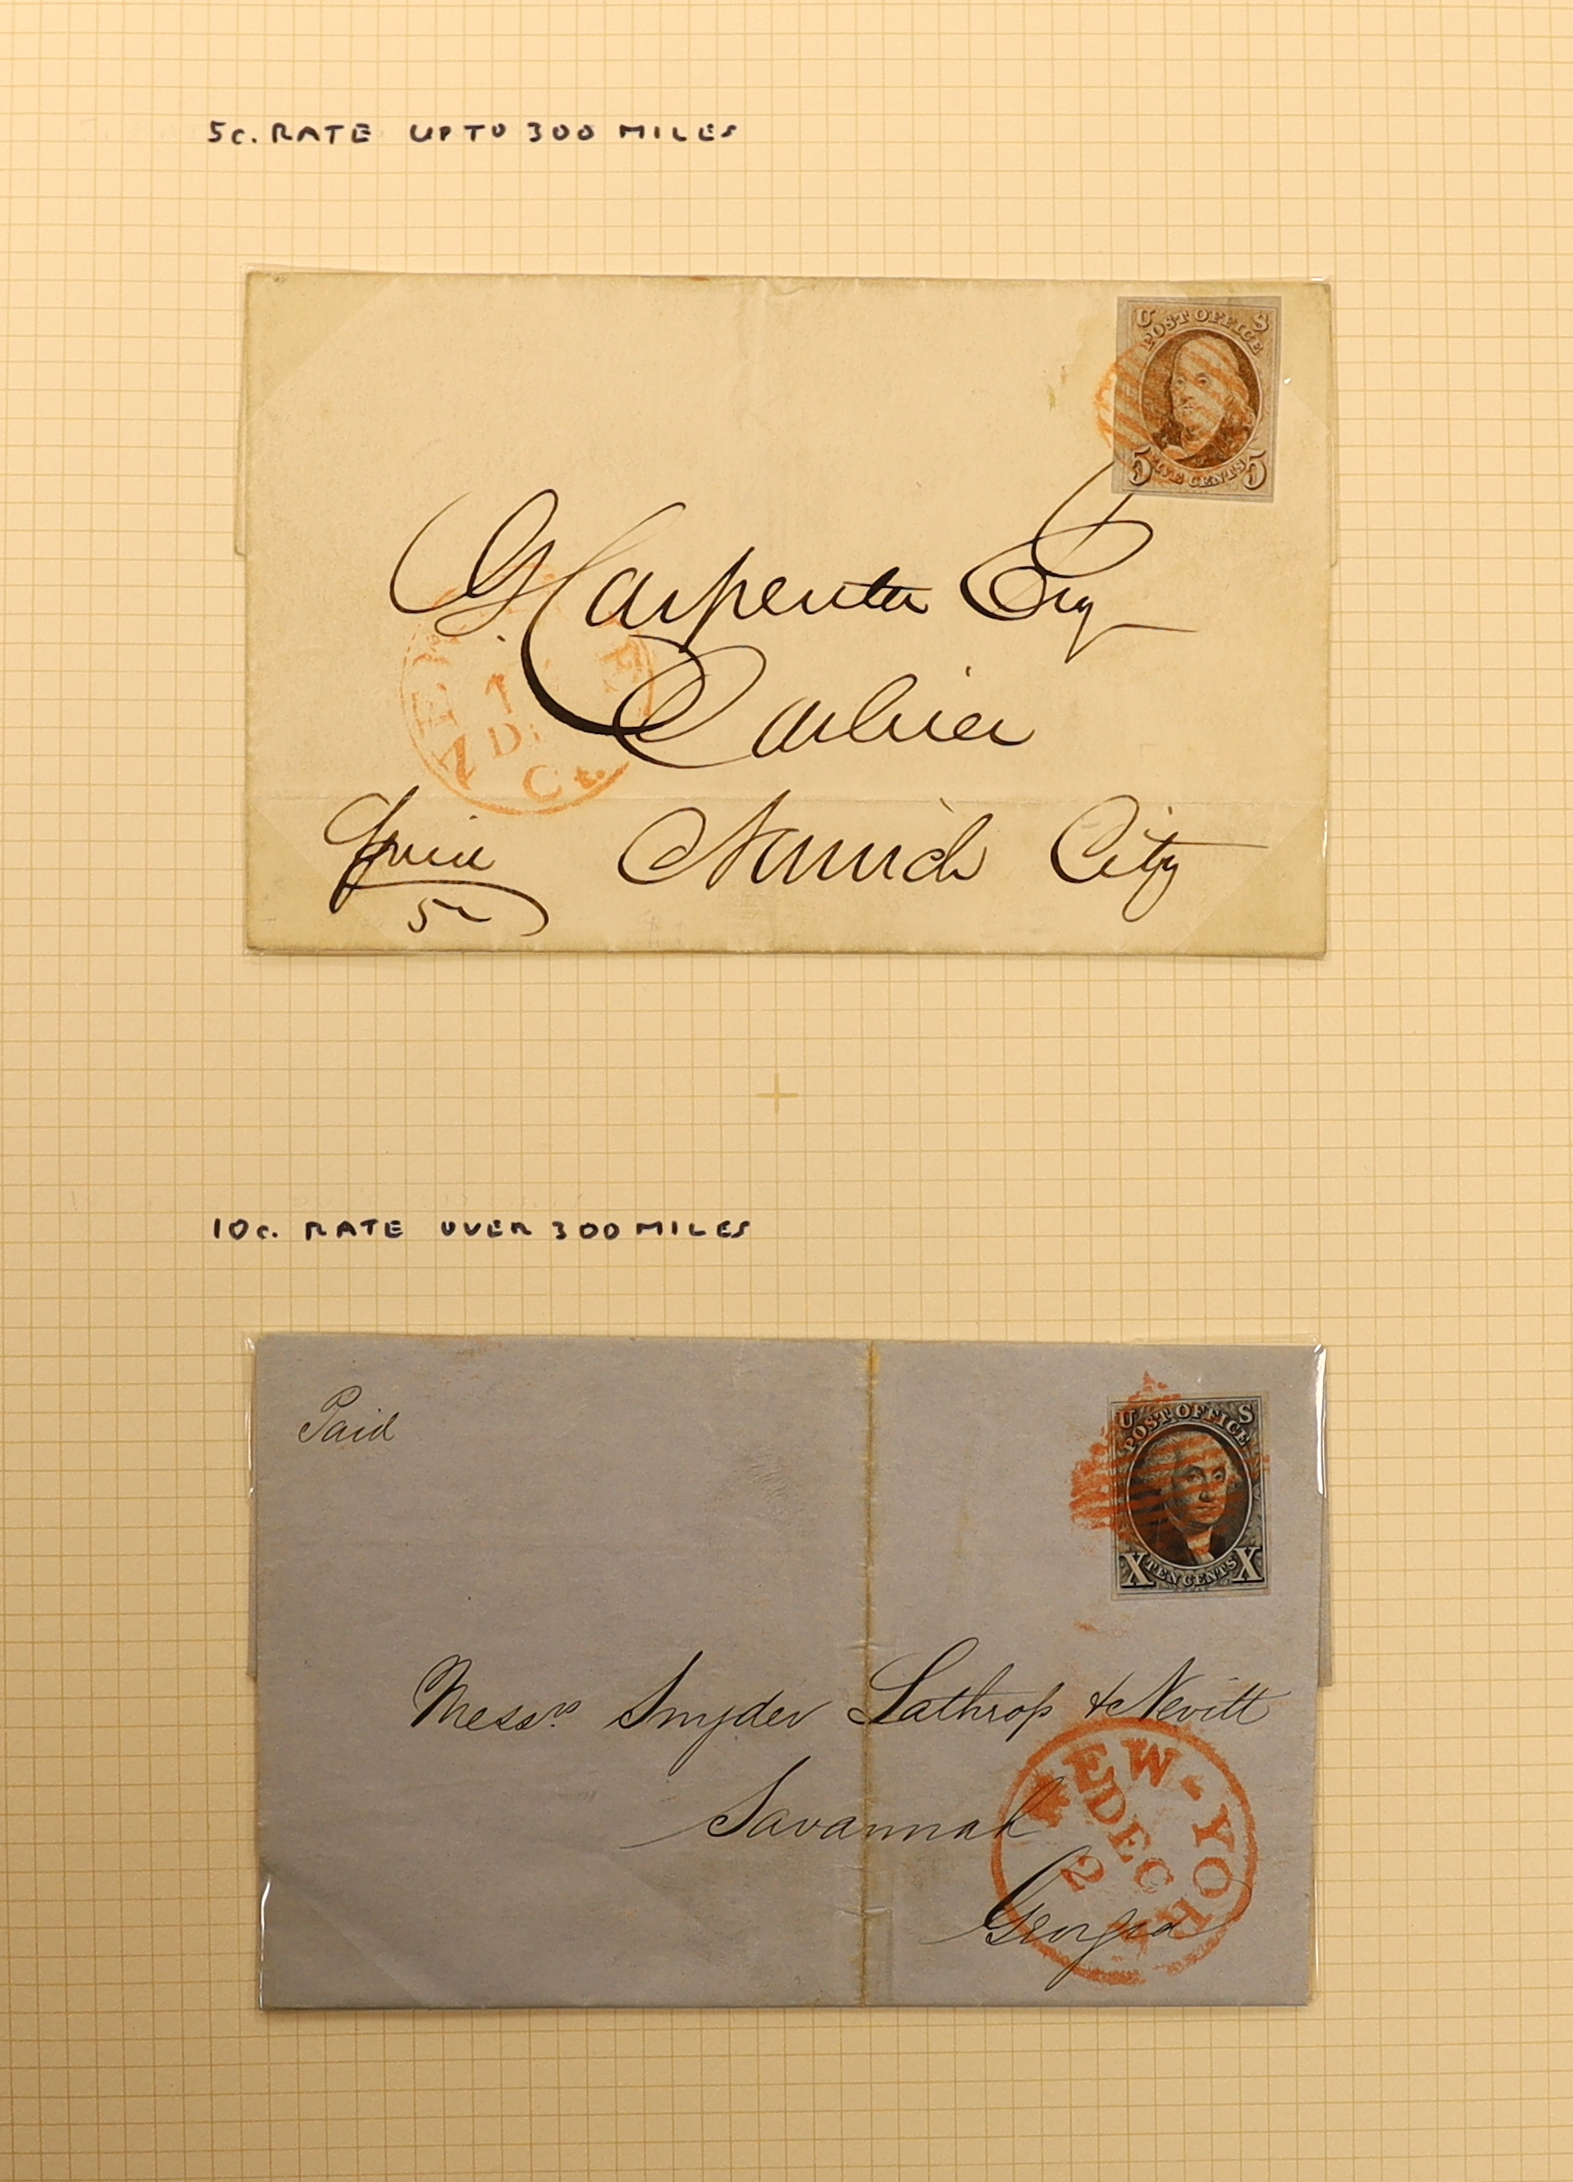 5c. RATE UP TO 300 MILES
U S
POST OFFICE
5 FIVE CENTS 5
G. Carpenter Esq
Cashier
Ct.
5
City
10c. RATE OVER 300 MILES
Paid
U S
POST OFFICE
X TEN CENTS X
Messrs. Snyder Lathrop & Nevitt
Savannah
Georgia
NEW-YORK
DEC
2